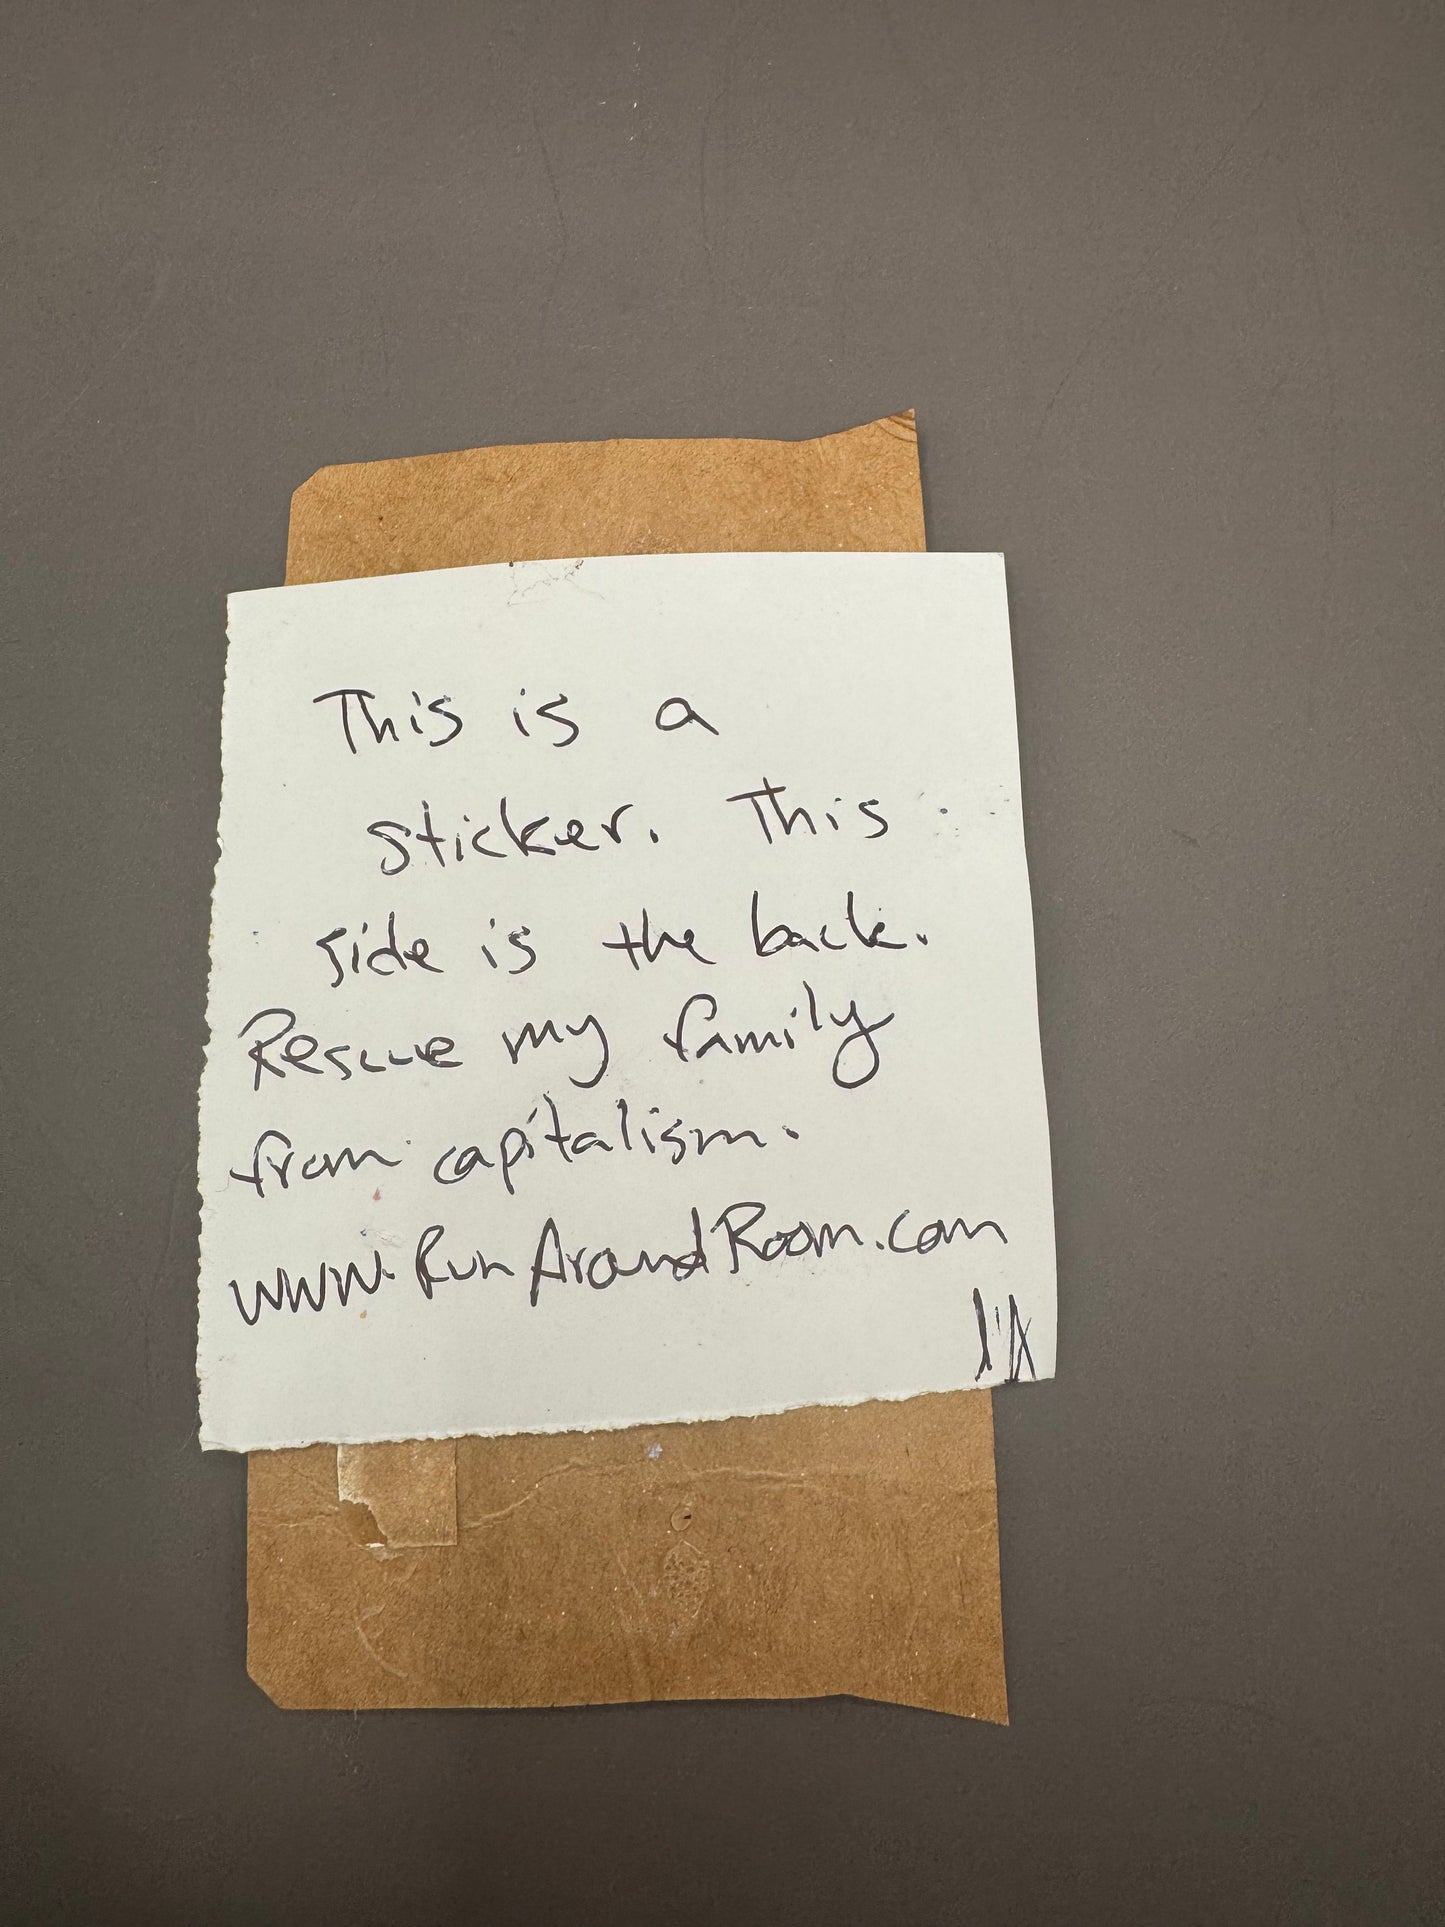 This is a
sticker. This
side is the back.
Rescue my family
from capitalism.
www.RunAroundRoom.com